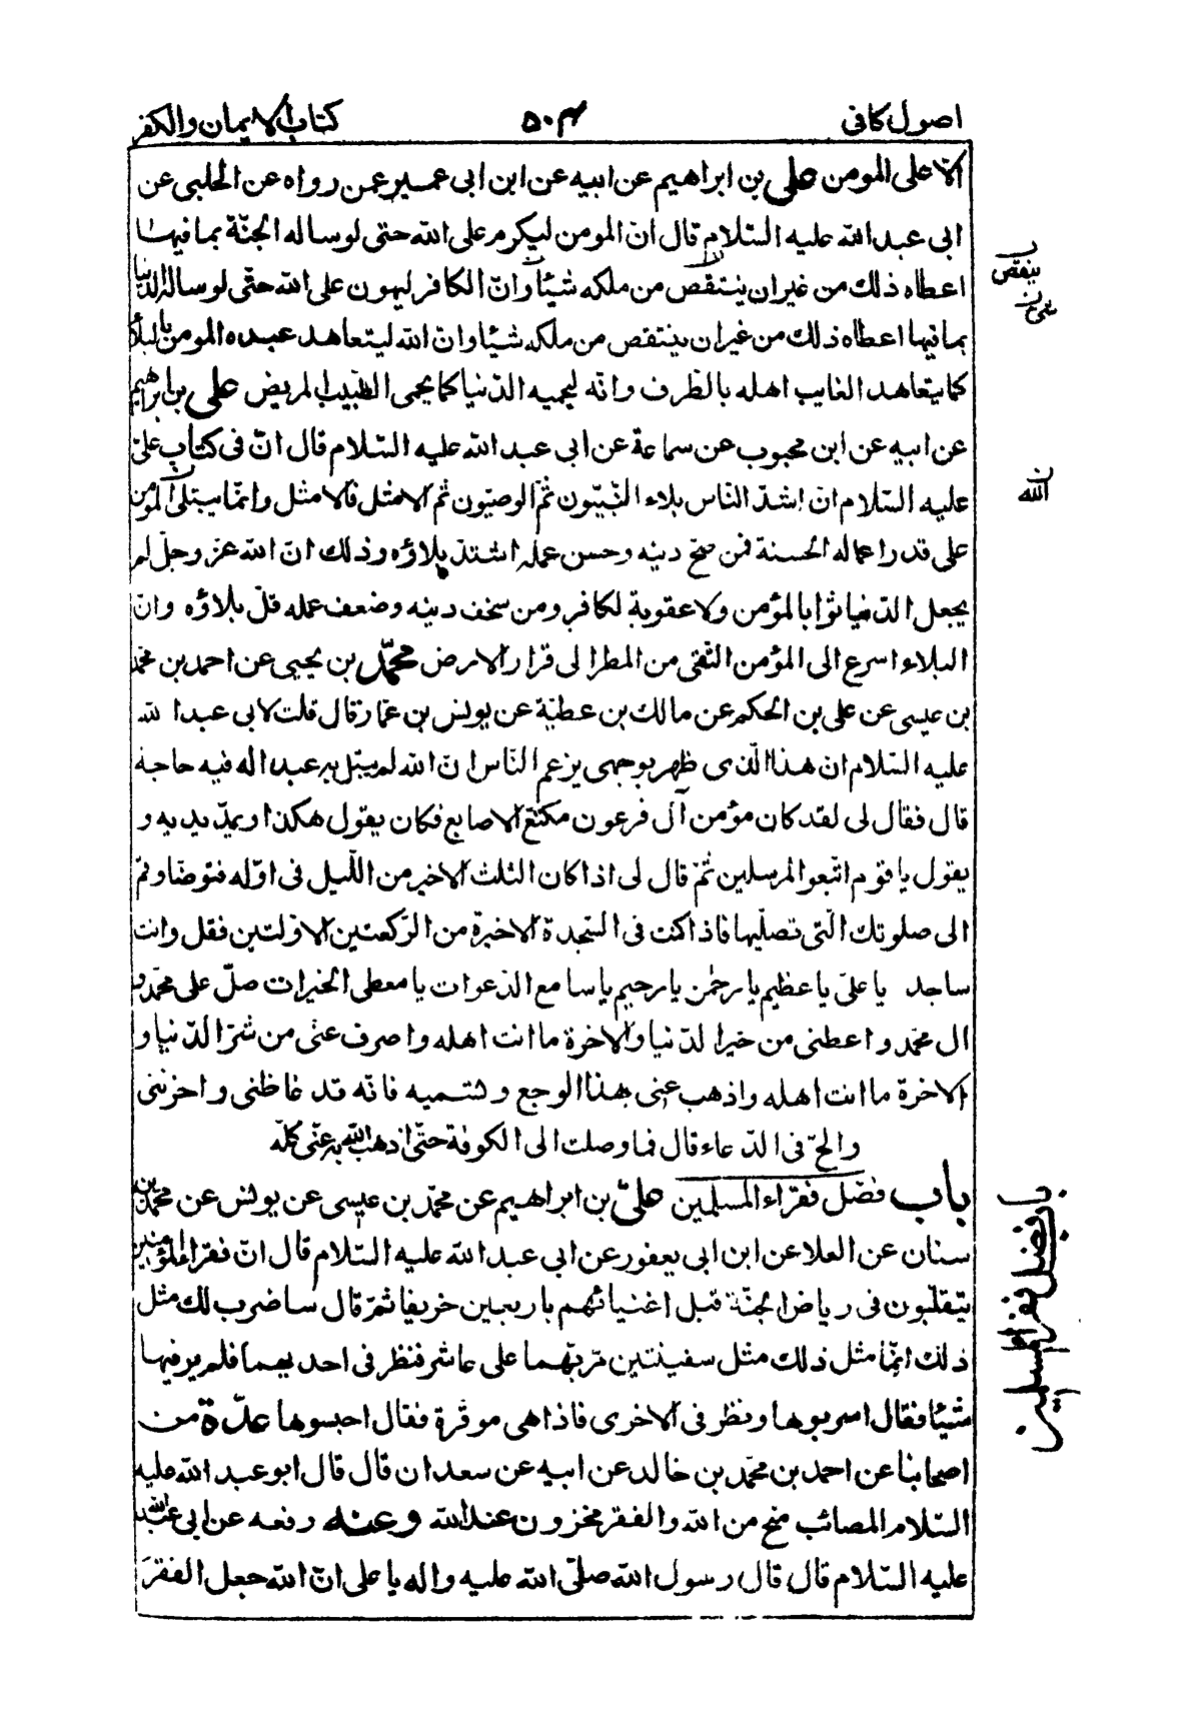 اصول كافى ۵۰۴ كتاب الايمان والكفر
الا على المومن على بن ابراهيم عن ابيه عن ابن ابى عمير عمن رواه عن الحلبى عن
ابى عبد الله عليه السّلام قال انّ المومن ليكرم على الله حتى لو ساله الجنّة بما فيها
اعطاه ذلك من غير ان ينتقص من ملكه شيئا وانّ الكافر ليهون على الله حتّى لو ساله الدنيا
بما فيها اعطاه ذلك من غير ان ينتقص من ملكه شيئا وانّ الله ليتعاهد عبده المومن بالبلاء
كما يتعاهد الغايب اهله بالظرف وانّه ليحميه الدّنيا كما يحمى الطّبيب المريض على بن ابراهيم
عن ابيه عن ابن محبوب عن سماعة عن ابى عبد الله عليه السّلام قال انّ فى كتاب علىّ
عليه السّلام انّ اشدّ النّاس بلاء النّبيّون ثمّ الوصيّون ثم الامثل فالامثل وانّما يبتلى المؤمن
على قدر اعماله الحسنة فمن صحّ دينه وحسن عمله اشتدّ بلاؤه وذلك انّ الله عزّ وجلّ لم
يجعل الدّنيا ثوابا لمؤمن ولا عقوبة لكافر ومن سخف دينه وضعف عمله قلّ بلاؤه وانّ
البلاء اسرع الى المؤمن التّقى من المطر الى قرار الارض محمّد بن يحيى عن احمد بن محمّد
بن عيسى عن على بن الحكم عن مالك بن عطيّة عن يونس بن عمّار قال قلت لابى عبد الله
عليه السّلام انّ هذا الّذى ظهر بوجهى يزعم النّاس انّ الله لم يبتل به عبدا له فيه حاجة
قال فقال لى لقد كان مؤمن آل فرعون مكنّع الاصابع فكان يقول هكذا ويمدّ يديه و
يقول يا قوم اتّبعوا المرسلين ثمّ قال لى اذا كان الثلث الاخير من اللّيل فى اوّله فتوضّا وقم
الى صلوتك الّتى تصلّيها فاذا كنت فى السّجدة الاخيرة من الرّكعتين الاوّلتين فقل وانت
ساجد يا علىّ يا عظيم يا رحمٰن يا رحيم يا سامع الدّعوات يا معطى الخيرات صلّ على محمّد و
ال محمّد و اعطنى من خير الدّنيا والاخرة ما انت اهله واصرف عنّى من شرّ الدّنيا و
الاخرة ما انت اهله واذهب عنى بهذا الوجع وتسميه فانّه قد غاظنى و احزننى
والحّ فى الدّعاء قال فما وصلت الى الكوفة حتّى اذهب الله به عنّى كلّه
باب فضل فقراء المسلمين علىّ بن ابراهيم عن محمّد بن عيسى عن يونس عن محمّد بن
سنان عن العلا عن ابن ابى يعفور عن ابى عبد الله عليه السّلام قال انّ فقراء المؤمنين
يتقلّبون فى رياض الجنّة قبل اغنيائهم باربعين خريفا ثمّ قال ساضرب لك مثل
ذلك انّما مثل ذلك مثل سفينتين مرّ بهما على عاشر فنظر فى احديهما فلم ير فيها
شيئا فقال اسربوها ونظر فى الاخرى فاذا هى موقرة فقال احبسوها عدّة من
اصحابنا عن احمد بن محمّد بن خالد عن ابيه عن سعدان قال قال ابو عبد الله عليه
السّلام المصائب منح من الله والفقر مخزون عند الله وعنه رفعه عن ابى عبد الله
عليه السّلام قال قال رسول الله صلّى الله عليه واله يا على انّ الله جعل الفقر
ينقص
الله
باب فضل فقراء المسلمين